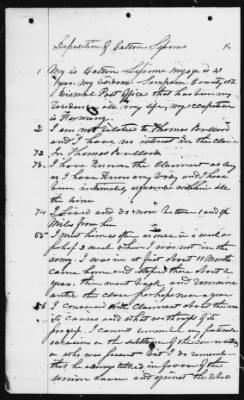 Deposition of Calton Sessoms
1 My is Calton Sessoms my age is 41
years my residence Sampson County at
Dismal Post Office that has been my
residence all my life, my occupation
is Farming.
2 I am not related to Thomas Bullard
and I have no interest in the claim
72 of Thomas Bullard.
73. I have known the Claimant as long
as I have known any body and I have
been intimately acquainted with him all
the time
74 I lived and do now between 1 and
miles from him
55 I met him often as once in a week or
when I was not in the
army. I was in at first about 11 months
came home and stayed there about 2
years. then went back and remained
until the close perhaps near a year
56 I conversed with Claimant about the war
its causes and what
progress. I cannot remember any particular
occasion or the substance of the conversation
or who was present but I do remember
that he always talked in favour of the
Union cause and against the Rebel